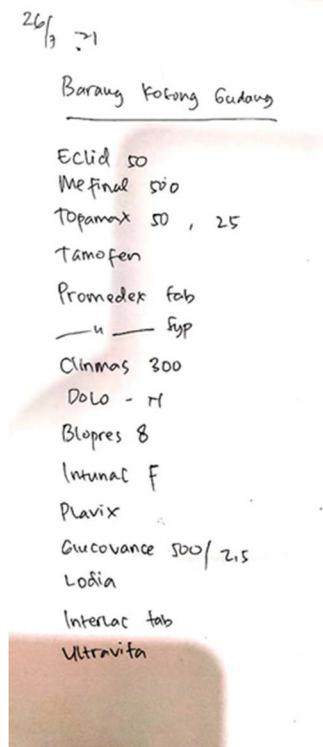 26/7 21
Barang Kosong Gudang
Eclid 50
Mefinal 500
Topamax 50 , 25
Tamofen
Promedex tab
—— u —— Syp
Clinmas 300
Dolo - M
Blopres 8
Intunal F
Plavix
Glucovance 500/2,5
Lodia
Interlac tab
Ultravita